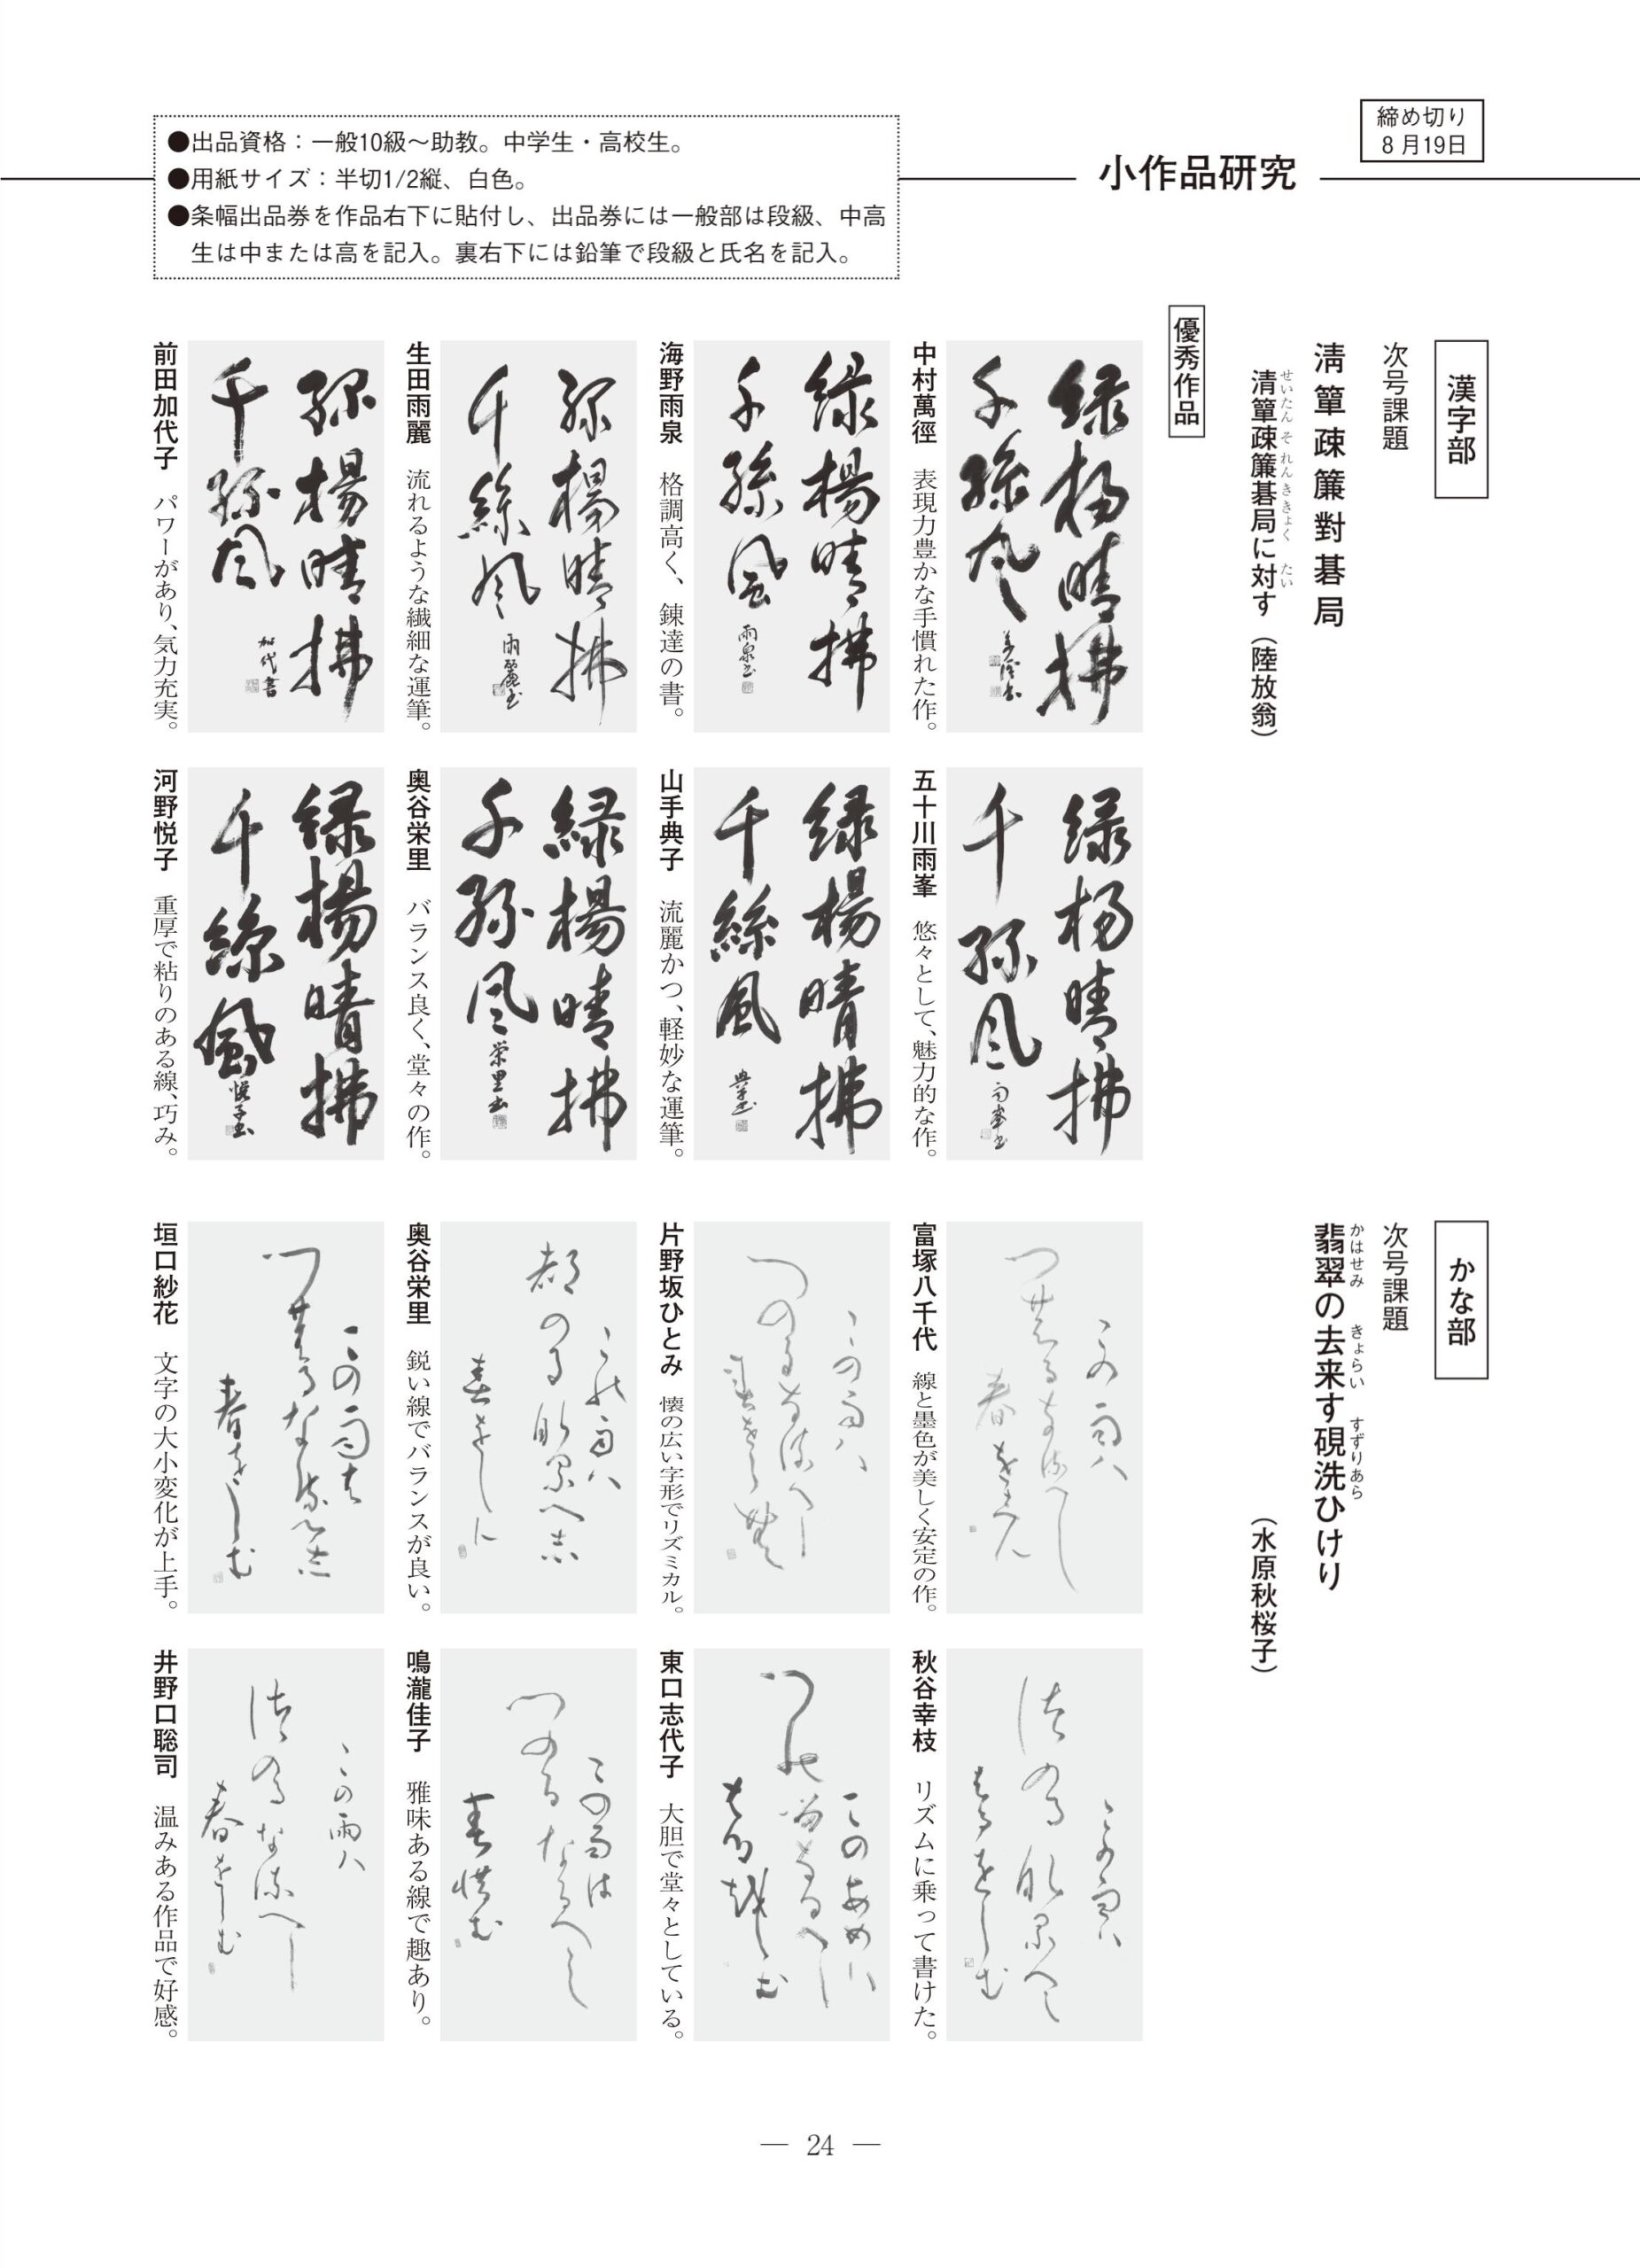 締め切り
8月19日
小作品研究
●出品資格：一般10級〜助教。中学生・高校生。
●用紙サイズ：半切1/2縦、白色。
●条幅出品券を作品右下に貼付し、出品券には一般部は段級、中高
生は中または高を記入。裏右下には鉛筆で段級と氏名を記入。
漢字部
次号課題
淸簟疎簾對碁局
せいたん そ れん き きょく たい
清簟疎簾碁局に対す（陸放翁）
優秀作品
緑楊晴拂
千絲風
中村萬徑 表現力豊かな手慣れた作。
緑楊晴拂
千絲風
雨泉書
海野雨泉 格調高く、錬達の書。
緑楊晴拂
千絲風
雨麗書
生田雨麗 流れるような繊細な運筆。
緑楊晴拂
千絲風
加代書
前田加代子 パワーがあり、気力充実。
緑楊晴拂
千絲風
雨峯書
五十川雨峯 悠々として、魅力的な作。
緑楊晴拂
千絲風
典子書
山手典子 流麗かつ、軽妙な運筆。
緑楊晴拂
千絲風
栄里書
奥谷栄里 バランス良く、堂々の作。
緑楊晴拂
千絲風
悦子書
河野悦子 重厚で粘りのある線、巧み。
かな部
次号課題
かはせみ きょらい すずりあら
翡翠の去来す硯洗ひけり
（水原秋桜子）
富塚八千代 線と墨色が美しく安定の作。
片野坂ひとみ 懐の広い字形でリズミカル。
奥谷栄里 鋭い線でバランスが良い。
垣口紗花 文字の大小変化が上手。
秋谷幸枝 リズムに乗って書けた。
東口志代子 大胆で堂々としている。
鳴瀧佳子 雅味ある線で趣あり。
井野口聡司 温みある作品で好感。
— 24 —